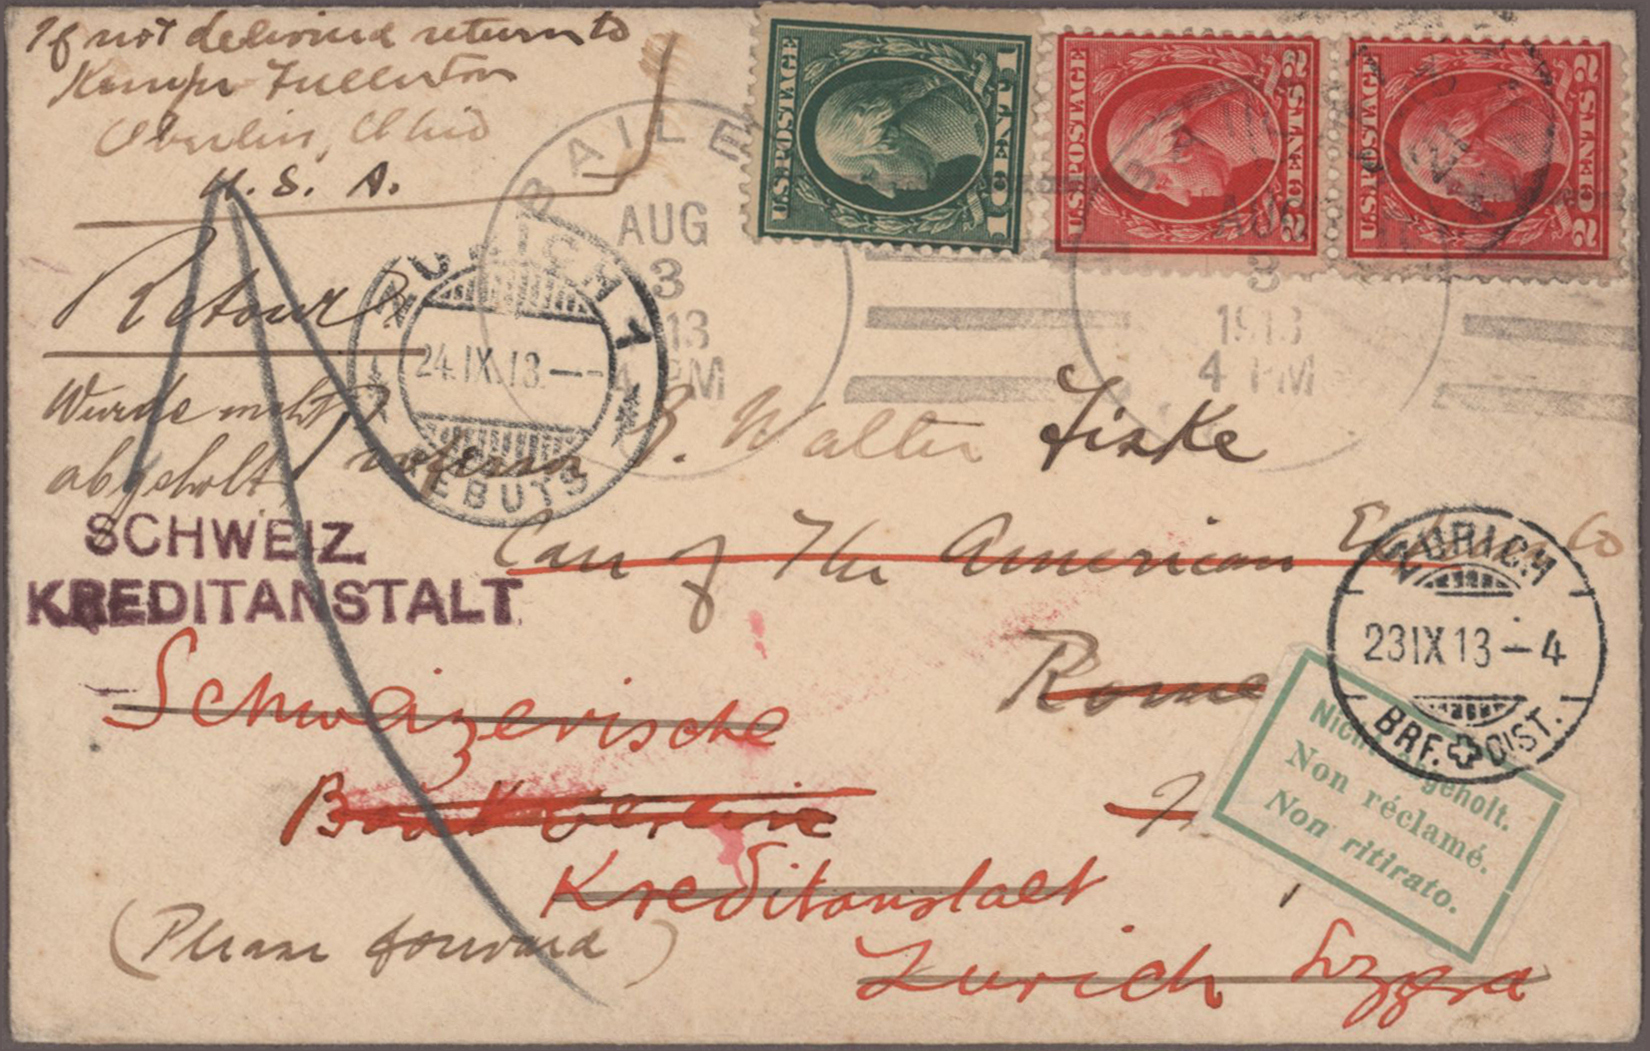 If not delivered return to
Kemper Fullerton
Oberlin, Ohio
U. S. A.
U.S. POSTAGE
1 CENT 1
U.S. POSTAGE
2 CENTS 2
U.S. POSTAGE
2 CENTS 2
BAILE
AUG
3
13
4 PM
BAILE
AUG
3
1913
4 PM
Retour
ZURICH 1
24.IX.13.—
REBUTS
Wurde nicht
abgeholt
Professor G. Walter Fiske
SCHWEIZ.
KREDITANSTALT
Care of The American Express Co
ZÜRICH
23 IX 13 – 4
BRF. DIST.
Rome
Schweizerische
Nicht abgeholt.
Non réclamé.
Non ritirato.
Kreditanstalt
(Please forward)
Zurich Svzzera